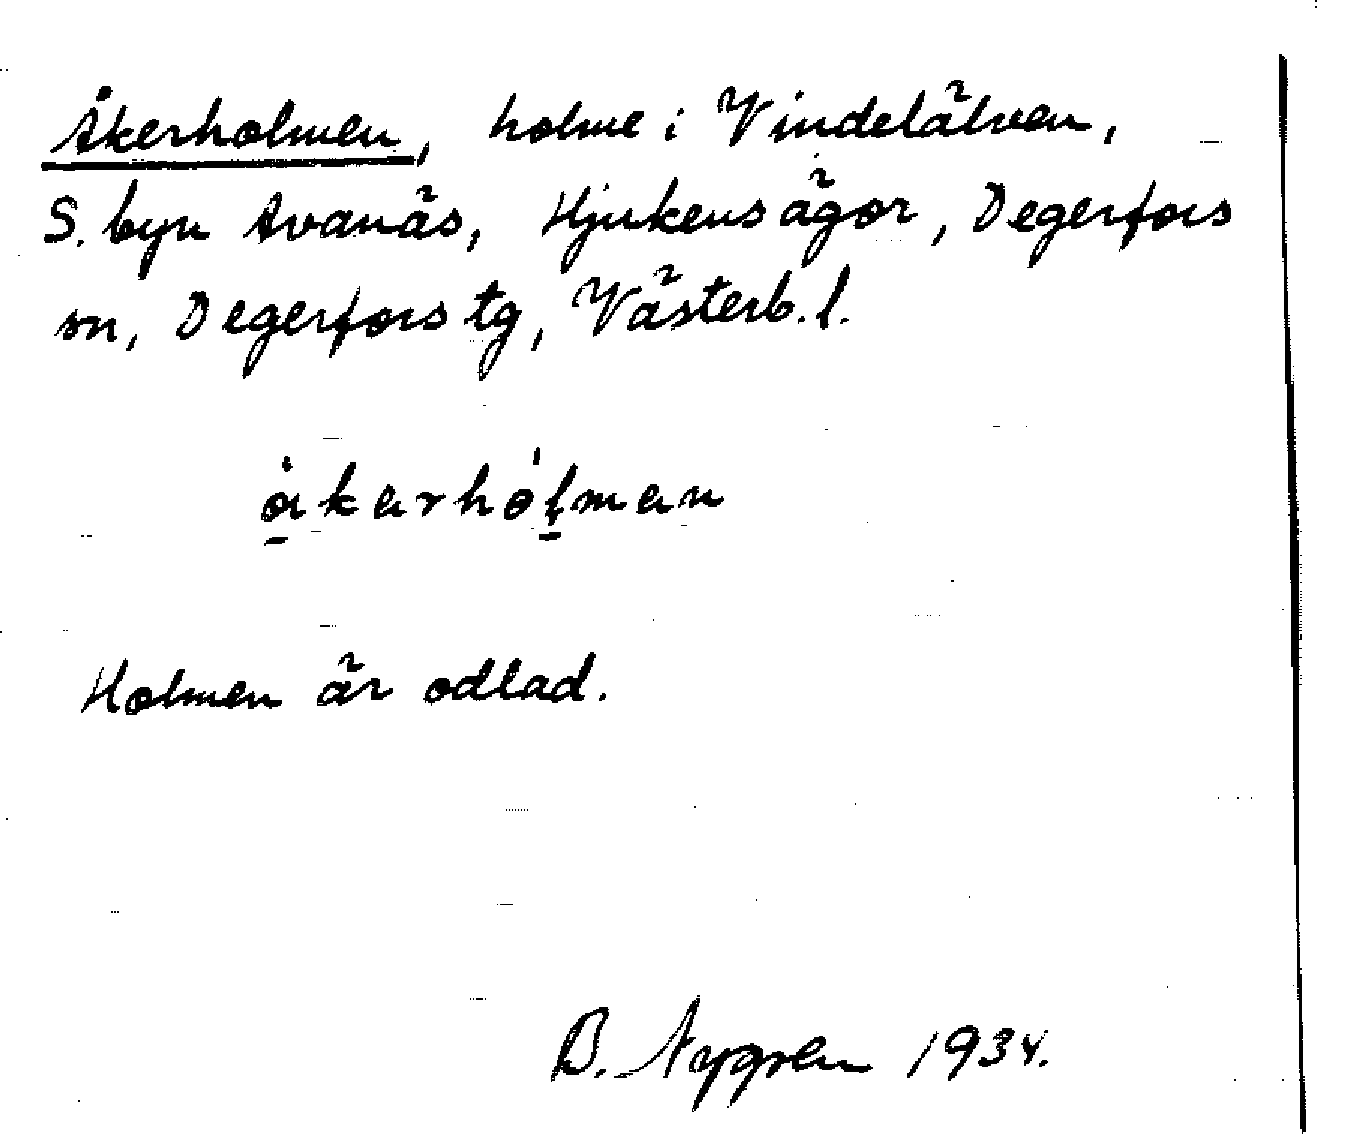 Åkerholmen, holme i Vindelälven,
S. byn Avanäs, Hjukens ägor, Degerfors
sn, Degerfors tg, Västerb. l.
åkerhólman
Holmen är odlad.
B. Nygren 1934.